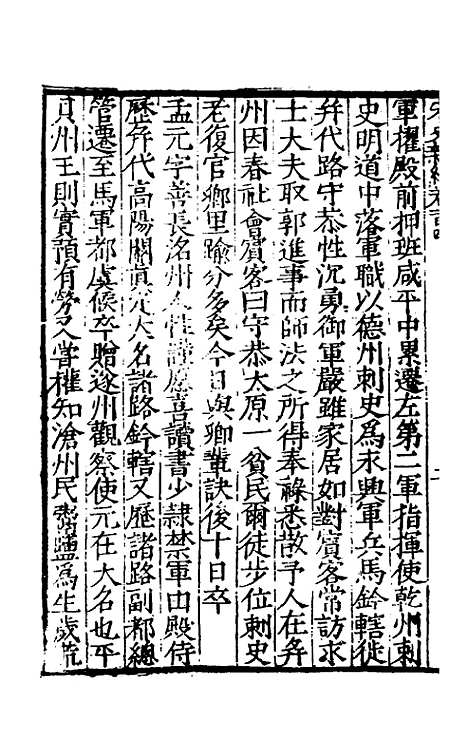 軍擢殿前押班咸平中累遷左第二軍指揮使乾州刺
史明道中落軍職以德州刺史爲永興軍兵馬鈐轄徙
幷代路守恭性沉勇御軍嚴雖家居如對賓客常訪求
士大夫取郭進事而師法之所得奉祿悉散予人在幷
州因春社會賓客曰守恭太原一貧民爾徒步位刺史
老復官鄉里踰分多矣今日與卿輩訣後十日卒
孟元字善長洺州人性謹愿喜讀書少隸禁軍由殿侍
歷幷代高陽關眞定大名諸路鈐轄又歷諸路副都總
管遷至馬軍都虞候卒贈遂州觀察使元在大名也平
貝州王則實預有勞又嘗權知滄州民鬻鹽爲生歲荒